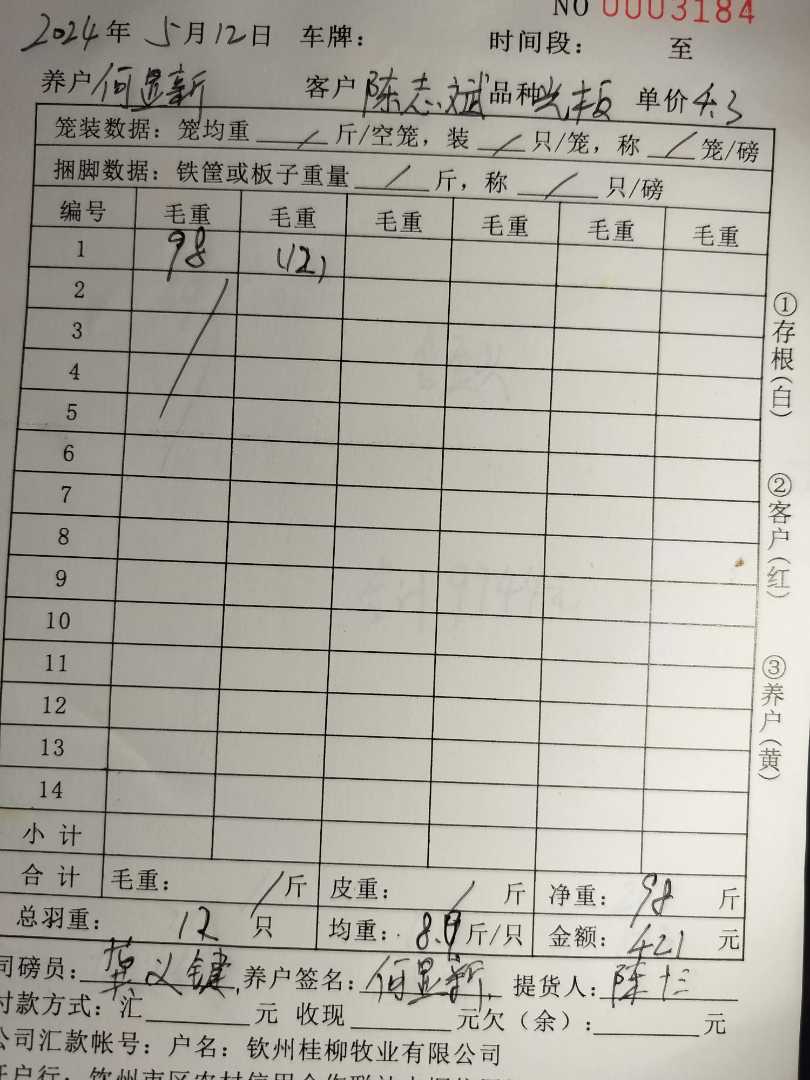 NO 0003184
2024年 5月12日 车牌： 时间段： 至
养户 何显新 客户 陈志斌 品种 光板 单价 4.3
笼装数据：笼均重 / 斤/空笼，装 / 只/笼，称 / 笼/磅
捆脚数据：铁筐或板子重量 / 斤，称 / 只/磅
编号 毛重 毛重 毛重 毛重 毛重 毛重
1 98 (12)
2
3
4
5
6
7
8
9
10
11
12
13
14
小计
合计 毛重： / 斤 皮重： / 斤 净重： 98 斤
总羽重： 12 只 均重： 斤/只 金额： 421 元
司磅员： 义键 养户签名： 何显新 提货人： 陈
付款方式：汇 元 收现 元欠（余）： 元
公司汇款帐号：户名：钦州桂柳牧业有限公司
①存根（白） ②客户（红） ③养户（黄）